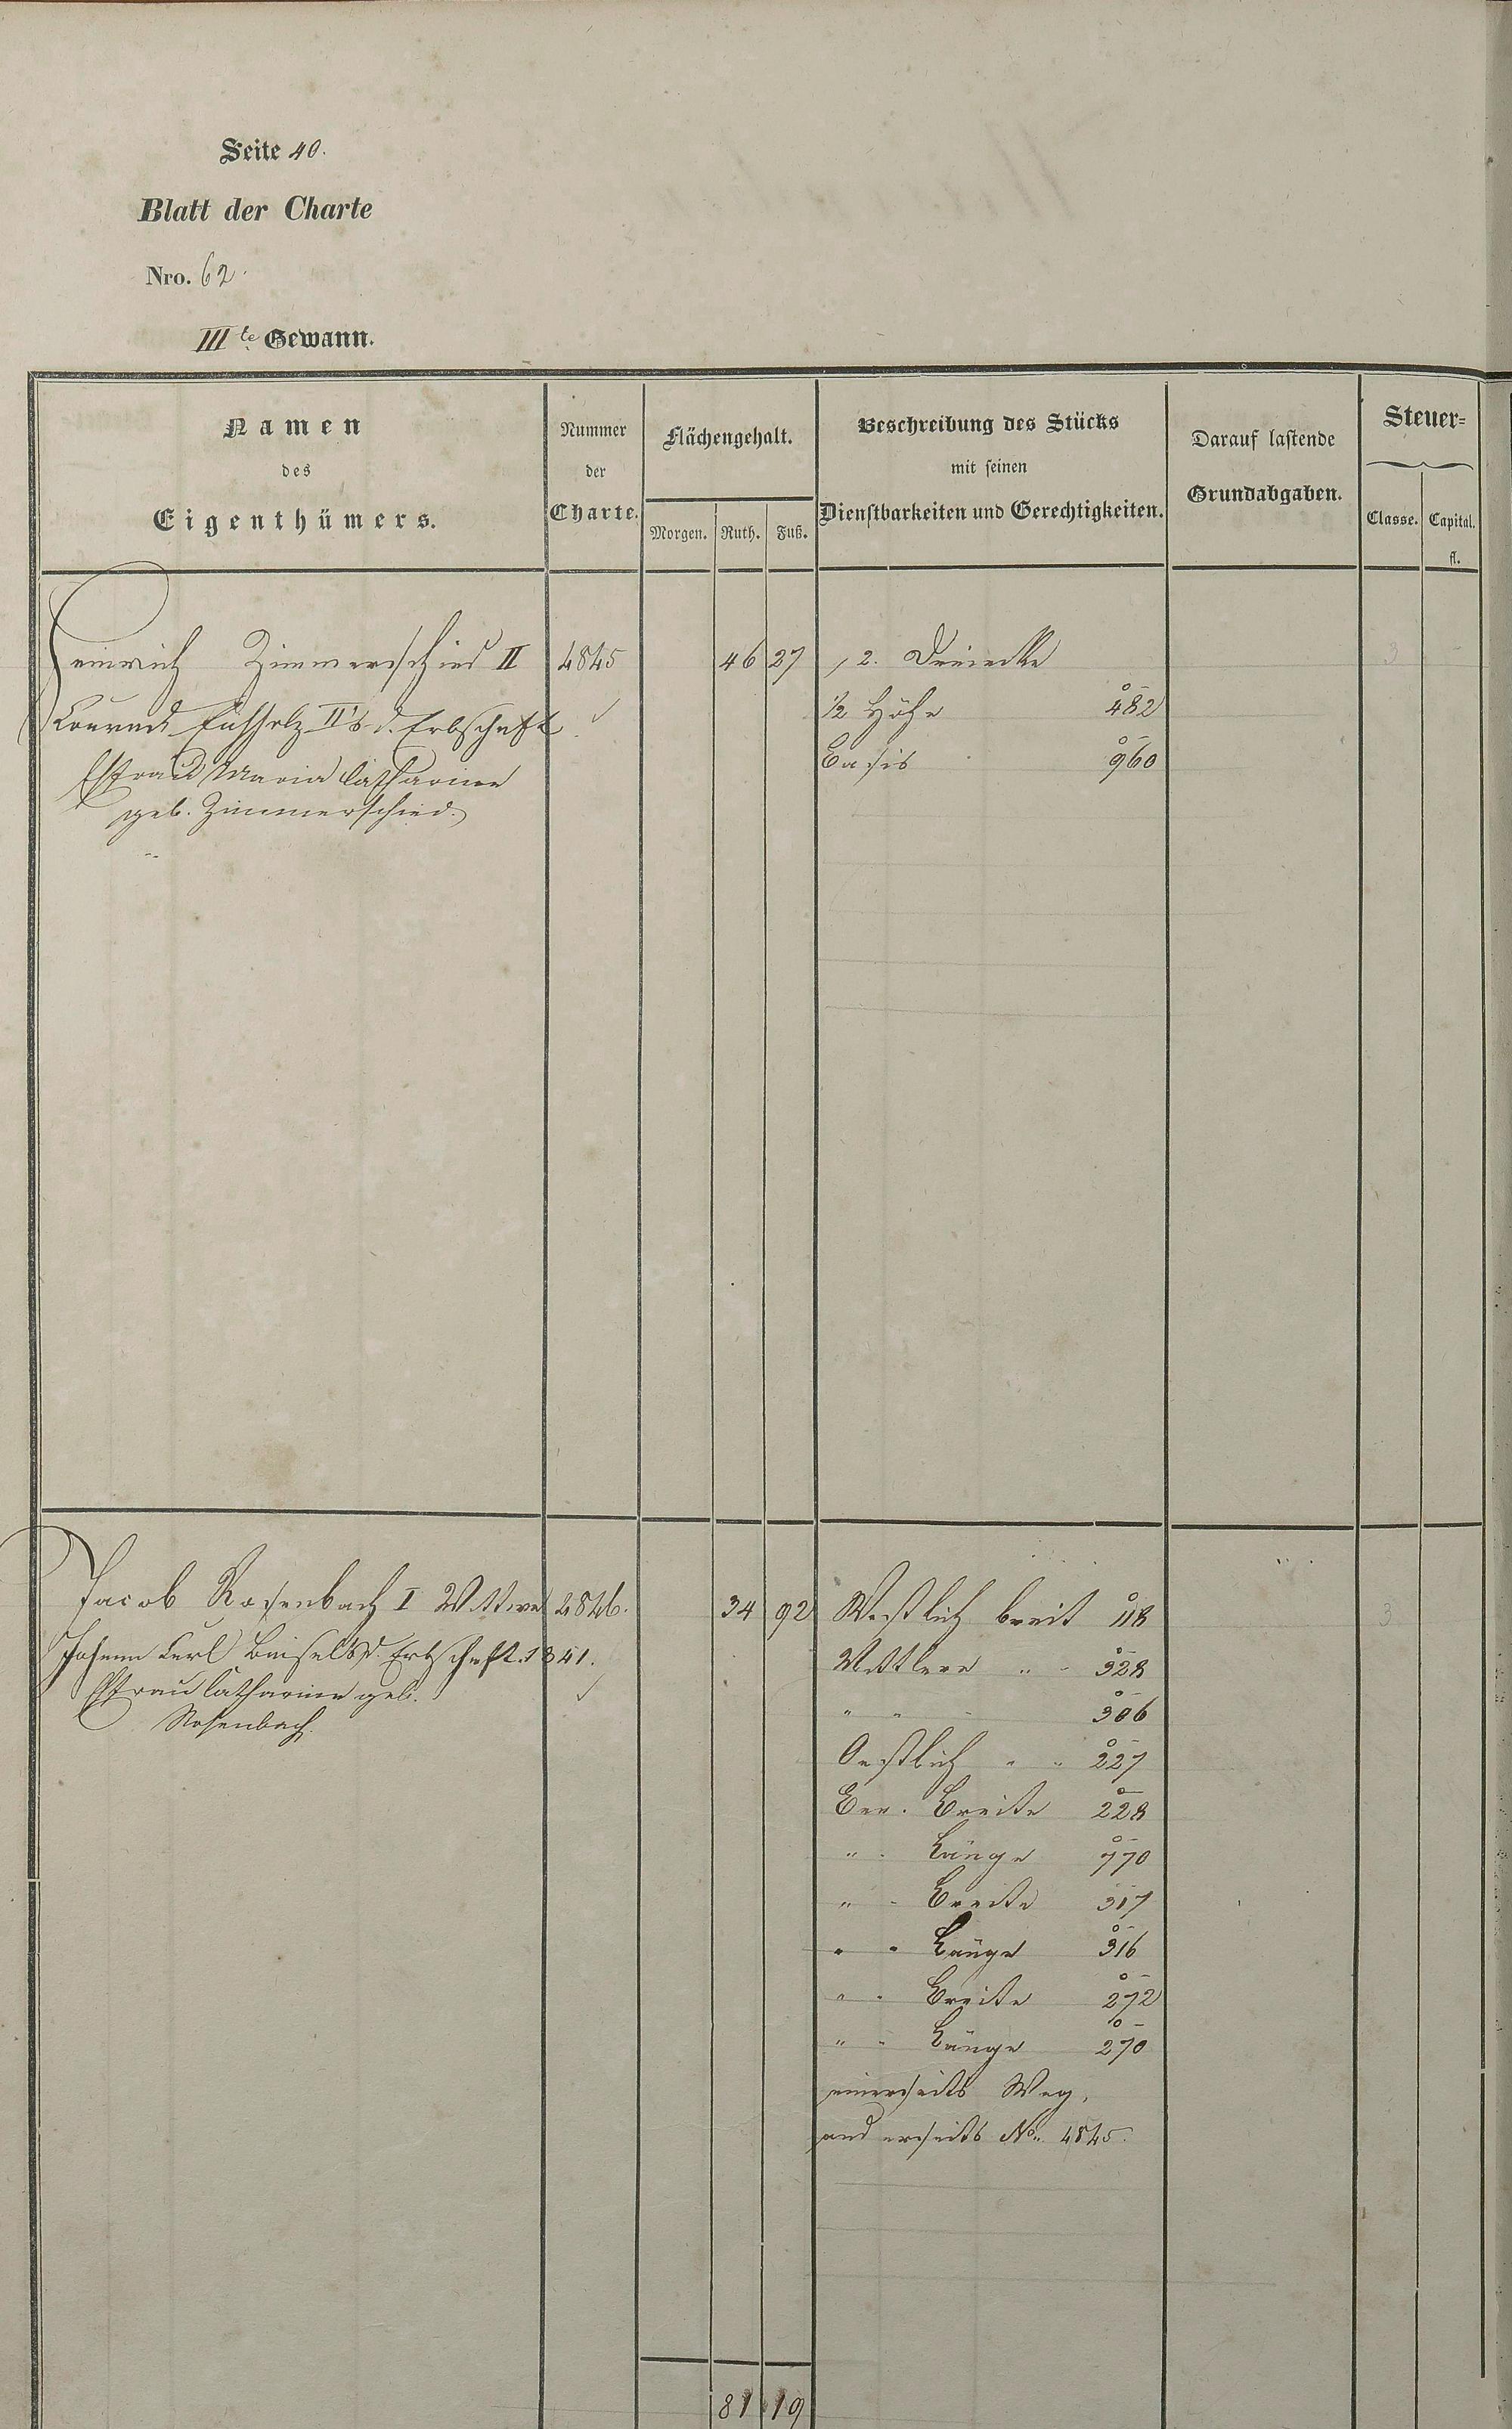 Seite 40.
Blatt der Charte
Nro. 62.
III te Gewann.
Namen
des
Eigenthümers.
Nummer
der
Charte.
Flächengehalt.
Morgen. Ruth. Fuß.
Beschreibung des Stücks
mit seinen
Dienstbarkeiten und Gerechtigkeiten.
Darauf lastende
Grundabgaben.
Steuer-
Classe. Capital.
fl.
Heinrich Zimmerschied II 4845 46 27 2. Dreiecke 3
Conrad II's d. Erbschaft ½ Höhe 482
Ehfrau Maria Catharine Basis 960
geb. Zimmerschied.
Jacob Rosenbach I Wittwe 4846. 34 92 Westlich breit 118 3
Johann Carl d. Erbschaft. 1841. Mittlere " 328
Ehfrau Catharine geb. " " 306
Rosenbach. Oestlich " " 227
Ber. Breite 228
" Länge 770
" Breite 317
" " Länge 316
" " Breite 272
" " Länge 270
einerseits Weg,
anderseits No. 4845.
81 19